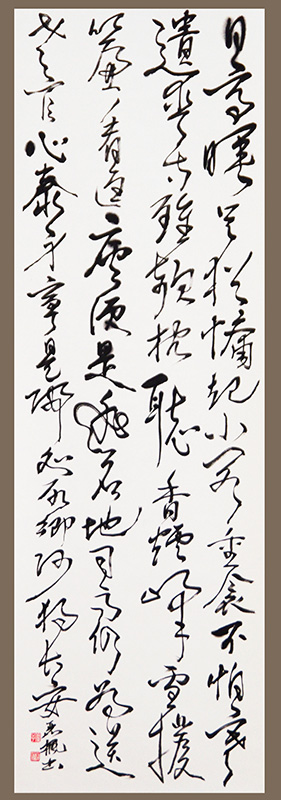 日高睡足猶慵起小閣重衾不怕寒
遺愛寺鐘欹枕聽香爐峰雪撥
簾看匡廬便是逃名地司馬仍為送
老官心泰身寧是歸處故鄉何獨長安